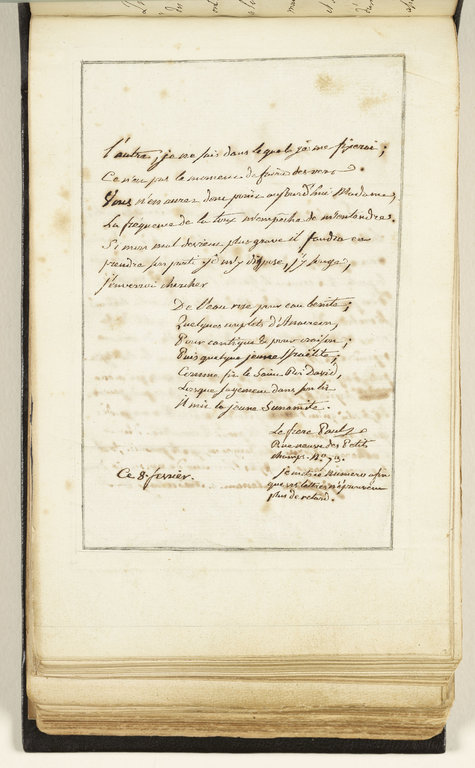 l'autre, je ne sais dans lequel je me fixerai;
Ce n'est pas le moment de faire des vers.
Vous n'en aurez donc point aujourd'hui Madame,
La frequence de la toux m'empeche de m'entendre.
Si mon mal devient plus grave il faudra en
prendre son parti je m'y dispose, j'y songe,
J'enverrai chercher
De l'eau rose pour eau benite;
Quelques couplets d'Anacreon,
Pour cantique et pour oraison;
Puis quelque jeune Israëlite;
Comme fit le Saint Roi David,
Lorsque sagement dans son lit
Il mit la jeune Sunamite.
Le frere Paul
Rue neuve des Petits
champs. No. 73.
numero afin
que vos lettres n'éprouvent
plus de retard.
Ce 8 fevrier.